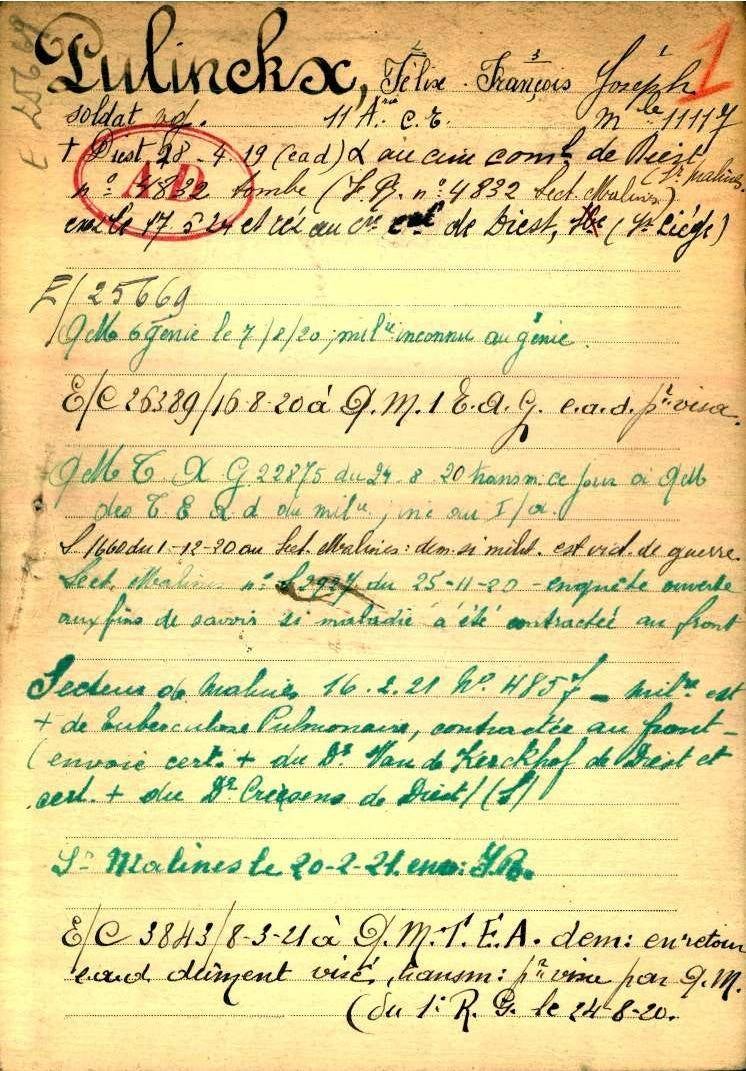 E 25669
1
Pulinckx, Félix François Joseph
2 3 1
soldat 11 A. c.r. mle 11117
+ Diest 28-4-19 (cad) & au cim. comal de Diest
(Sr Malines.
n° 4832 tombe (F.R. n° 4832 Sect Malines)
AD
exh. le 17.5.24 et réi au cre cal de Diest, (Sr Liège)
E/25669
QM 6 Génie le 7/8/20; milre inconnu au génie.
E/C 26389/16-8-20 à Q.M. 1 E.A.G. e.a.d. pr visa.
QM T A G 22875 du 24-8-20 transm. ce jour à QM
des T E A d du milre, inc au I/a.
S 1660 du 1-12-20 au Sect. Malines: dem. si milit. est vict. de guerre
Sect. Malines n° S 2927 du 25-11-20 - enquête ouverte
aux fins de savoir si maladie a été contractée au front
Secteur de Malines 16.2.21 N° 4857 - milre est
+ de tuberculose Pulmonaire, contractée au front -
(envoie cert. + du Dr Van de Kerckhof de Diest et
cert. + du Dr de Diest) (S)
Sr Malines le 20-2-21. env: F.R.
E/C 3843/8-3-21 à Q.M.T.E.A. dem: en retour
e.a.d dûment visé, transm: pr visa par Q.M.
(du 1r R. G. le 24-8-20.